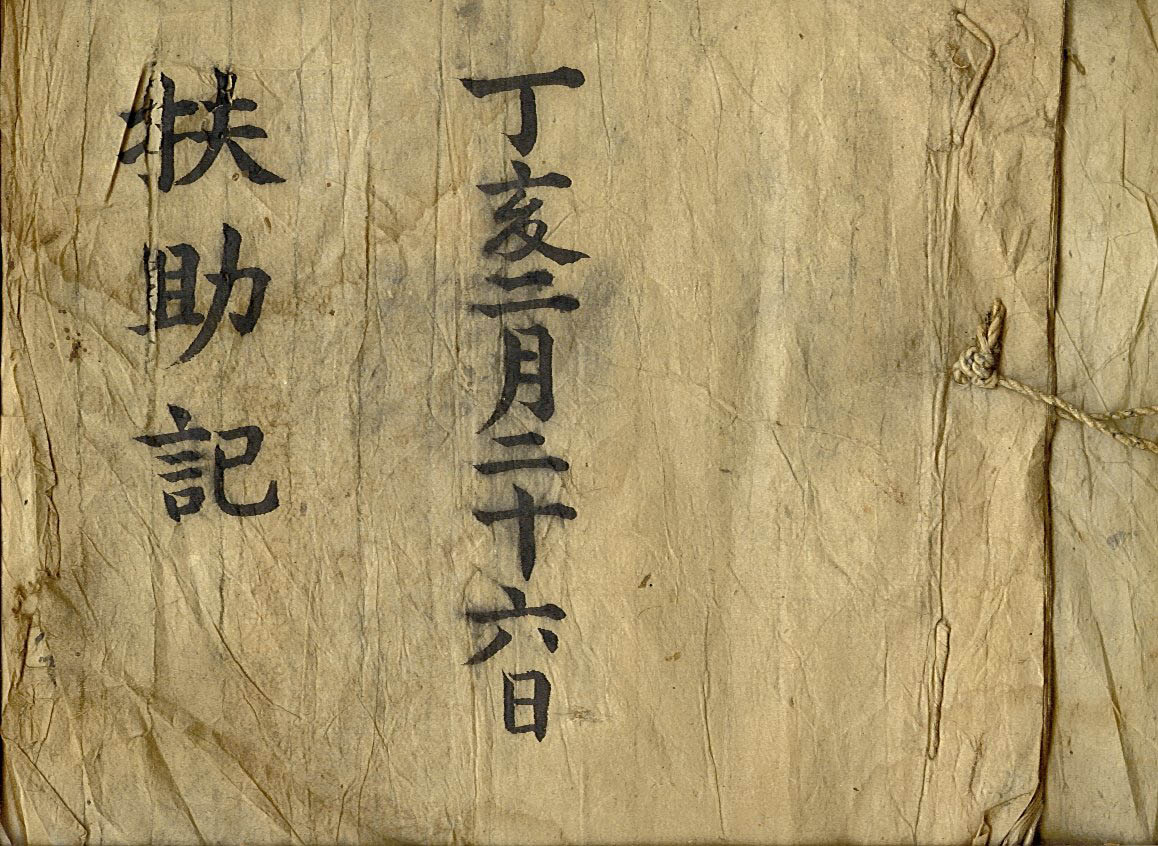 丁亥二月二十六日
扶助記